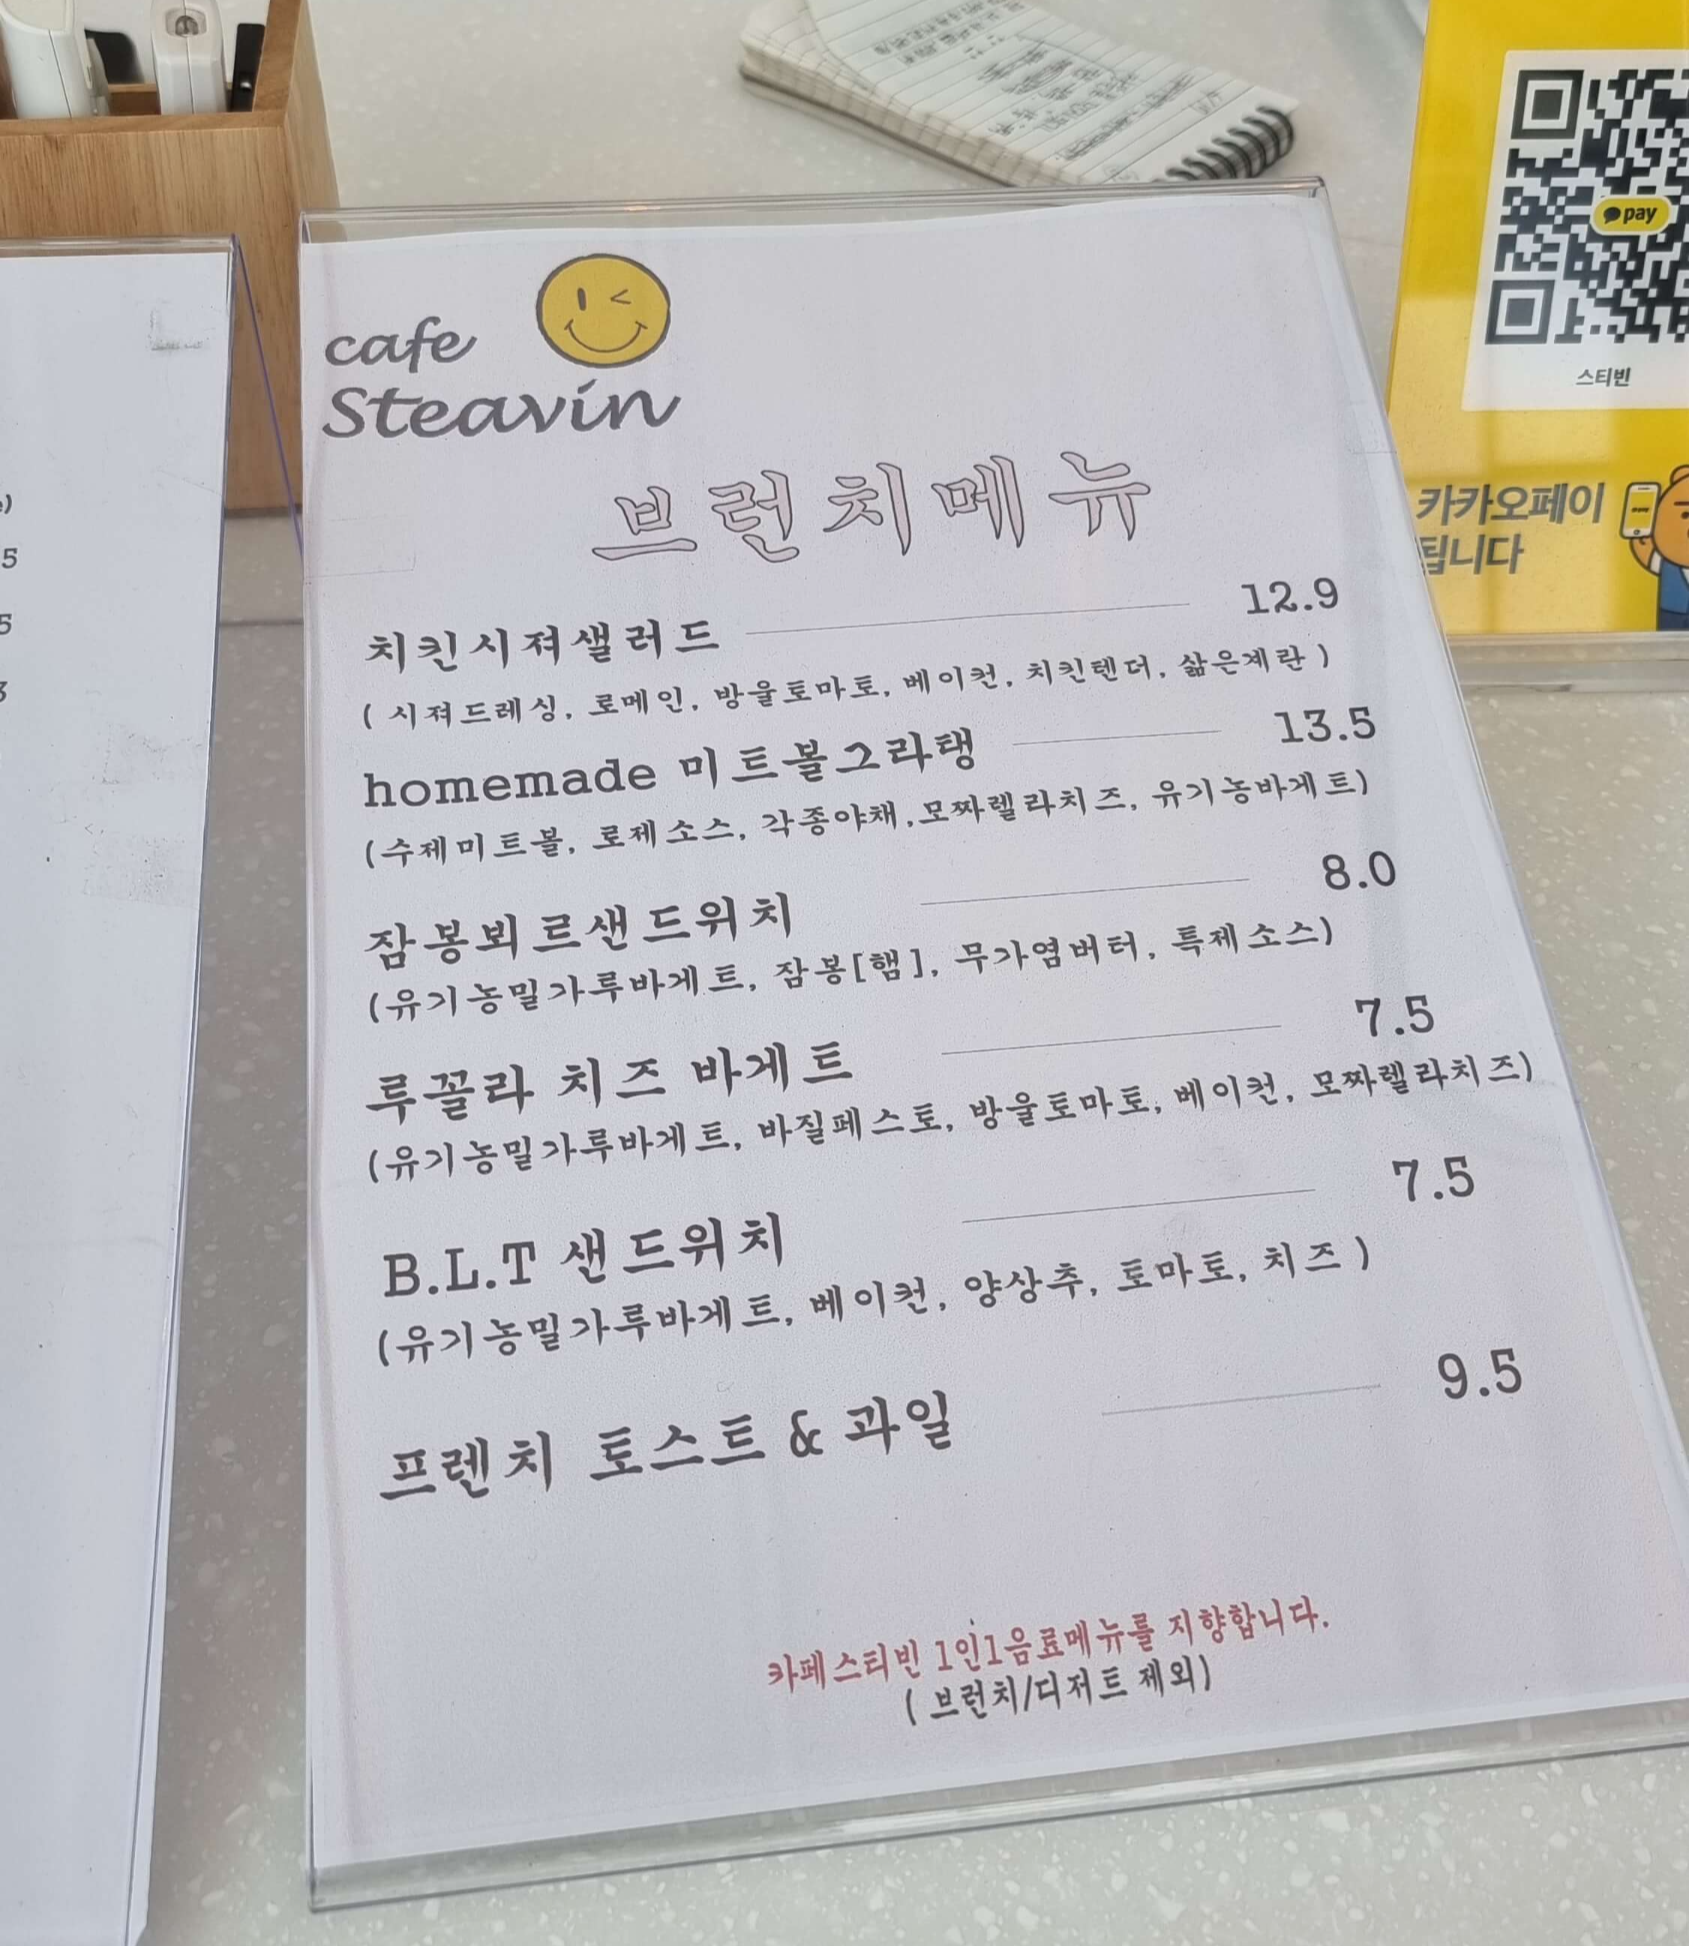 cafe
Steavin
브런치메뉴
치킨시져샐러드 12.9
( 시져드레싱, 로메인, 방울토마토, 베이컨, 치킨텐더, 삶은계란 )
homemade 미트볼그라탱 13.5
(수제미트볼, 로제소스, 각종야채,모짜렐라치즈, 유기농바게트)
잠봉뵈르샌드위치 8.0
(유기농밀가루바게트, 잠봉[햄], 무가염버터, 특제소스)
루꼴라 치즈 바게트 7.5
(유기농밀가루바게트, 바질페스토, 방울토마토, 베이컨, 모짜렐라치즈)
B.L.T 샌드위치 7.5
(유기농밀가루바게트, 베이컨, 양상추, 토마토, 치즈 )
프렌치 토스트 & 과일 9.5
카페스티빈 1인1음료메뉴를 지향합니다.
( 브런치/디저트 제외)
pay
스티빈
카카오페이
됩니다
5
5